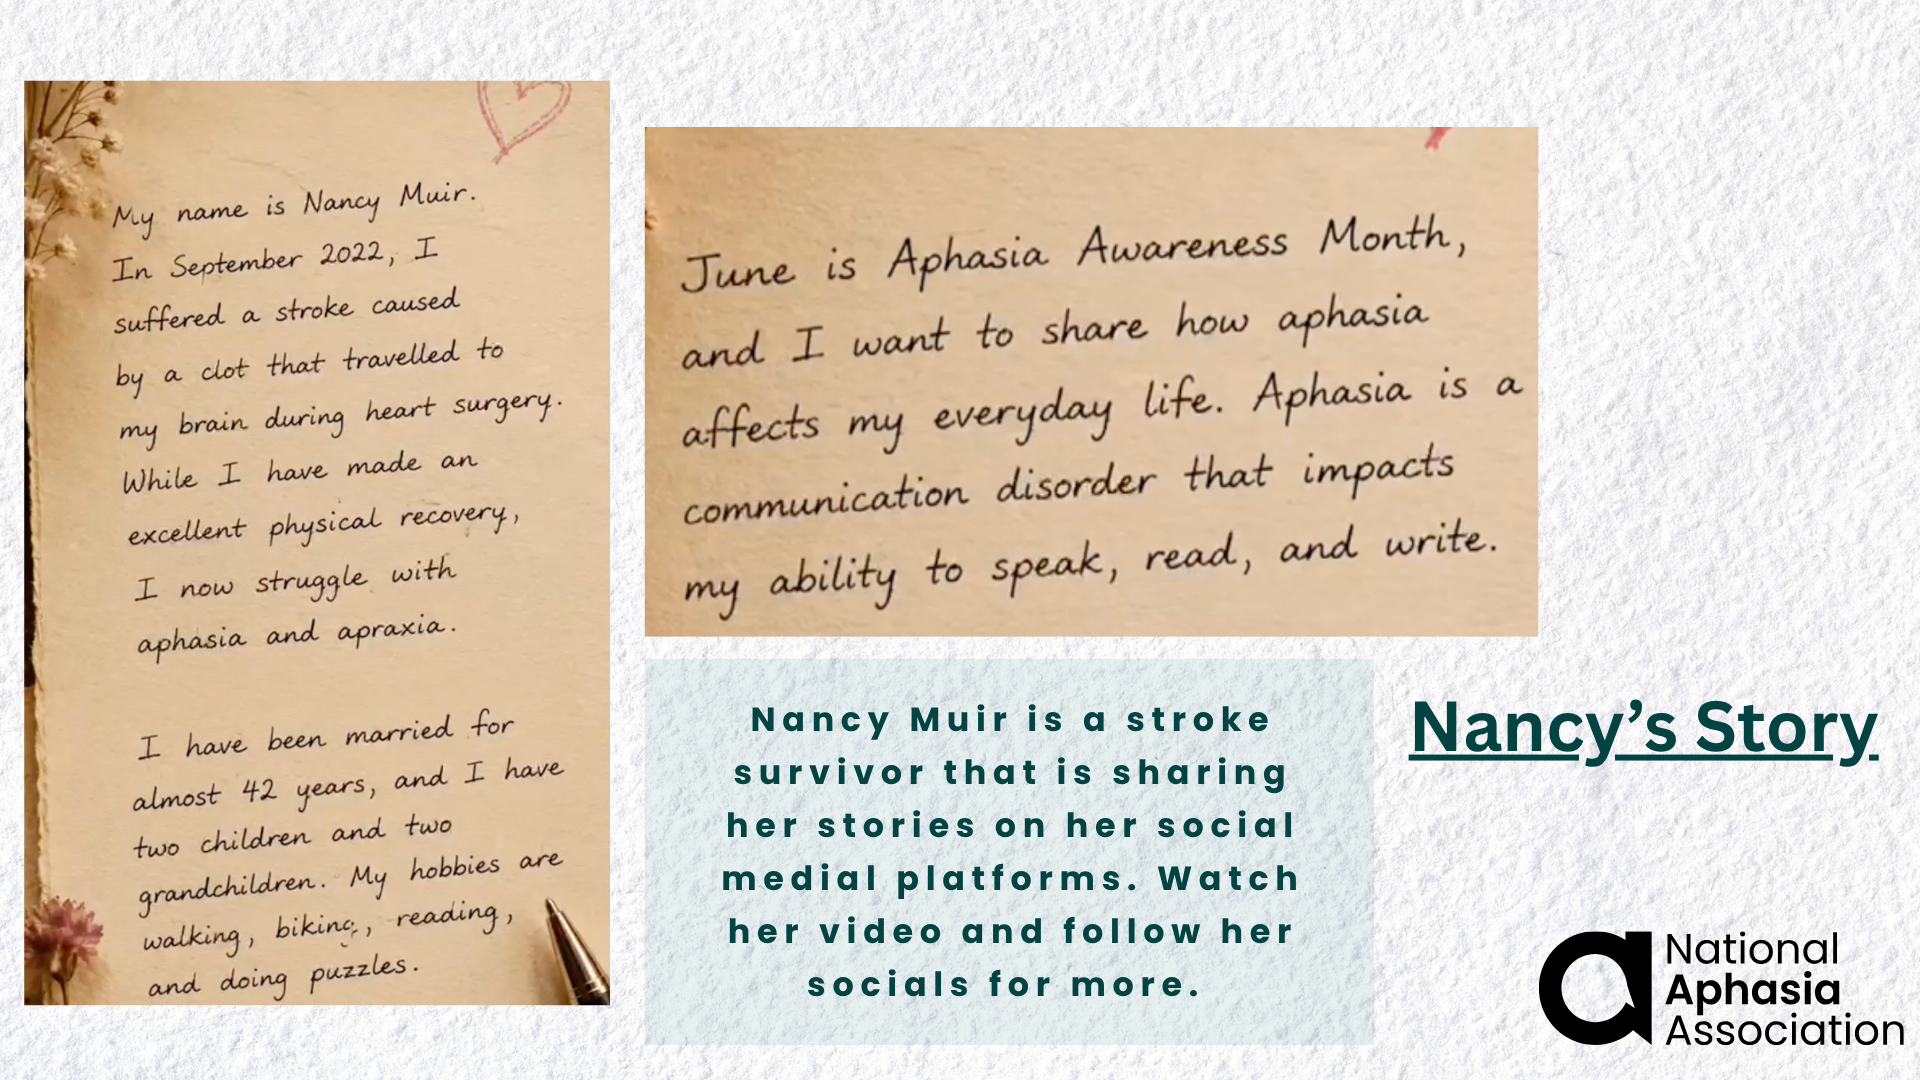 My name is Nancy Muir.
In September 2022, I
suffered a stroke caused
by a clot that travelled to
my brain during heart surgery.
While I have made an
excellent physical recovery,
I now struggle with
aphasia and apraxia.
I have been married for
almost 42 years, and I have
two children and two
grandchildren. My hobbies are
walking, biking, reading,
and doing puzzles.
June is Aphasia Awareness Month,
and I want to share how aphasia
affects my everyday life. Aphasia is a
communication disorder that impacts
my ability to speak, read, and write.
Nancy Muir is a stroke
survivor that is sharing
her stories on her social
medial platforms. Watch
her video and follow her
socials for more.
Nancy's Story
National
Aphasia
Association